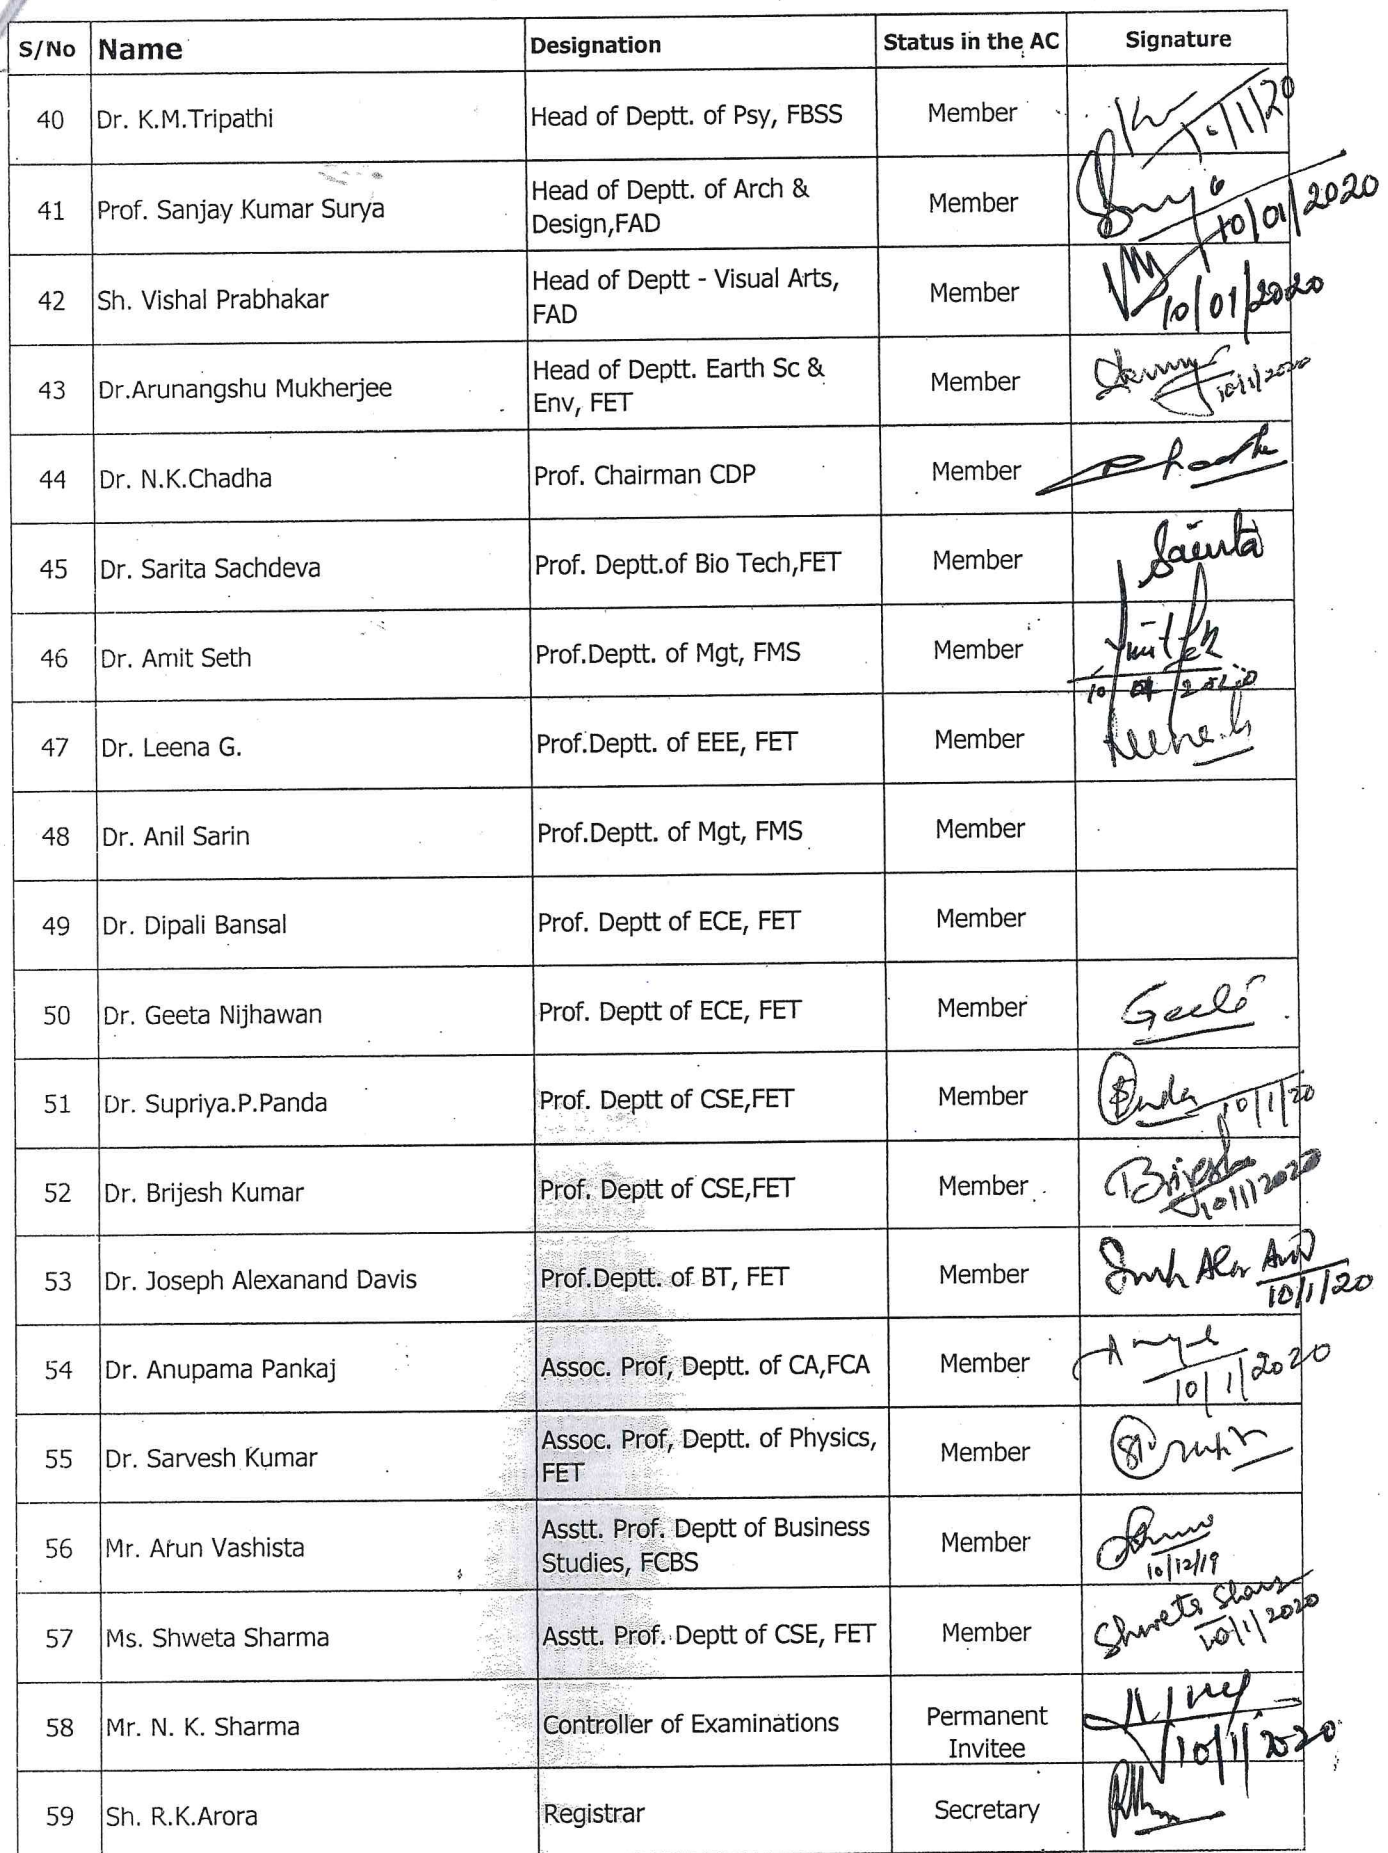 S/No Name Designation Status in the AC Signature
40 Dr. K.M.Tripathi Head of Deptt. of Psy, FBSS Member 10/1/20
41 Prof. Sanjay Kumar Surya Head of Deptt. of Arch & Member
Design,FAD 10/01/2020
42 Sh. Vishal Prabhakar Head of Deptt - Visual Arts, Member
FAD 10/01/2020
43 Dr.Arunangshu Mukherjee Head of Deptt. Earth Sc & Member
Env, FET 10/1/2020
44 Dr. N.K.Chadha Prof. Chairman CDP Member
45 Dr. Sarita Sachdeva Prof. Deptt.of Bio Tech,FET Member Sarita
46 Dr. Amit Seth Prof.Deptt. of Mgt, FMS Member
10/01/2020
47 Dr. Leena G. Prof.Deptt. of EEE, FET Member Leena.G
48 Dr. Anil Sarin Prof.Deptt. of Mgt, FMS Member
49 Dr. Dipali Bansal Prof. Deptt of ECE, FET Member
50 Dr. Geeta Nijhawan Prof. Deptt of ECE, FET Member Geeta
51 Dr. Supriya.P.Panda Prof. Deptt of CSE,FET Member 10/1/20
52 Dr. Brijesh Kumar Prof. Deptt of CSE,FET Member Brijesh
10/1/2020
53 Dr. Joseph Alexanand Davis Prof.Deptt. of BT, FET Member
10/1/20
54 Dr. Anupama Pankaj Assoc. Prof, Deptt. of CA,FCA Member
10/1/2020
55 Dr. Sarvesh Kumar Assoc. Prof, Deptt. of Physics, Member
FET
56 Mr. Arun Vashista Asstt. Prof. Deptt of Business Member
Studies, FCBS 10/12/19
57 Ms. Shweta Sharma Asstt. Prof. Deptt of CSE, FET Member Shweta Sharma
10/1/2020
58 Mr. N. K. Sharma Controller of Examinations Permanent
Invitee 10/1/2020
59 Sh. R.K.Arora Registrar Secretary